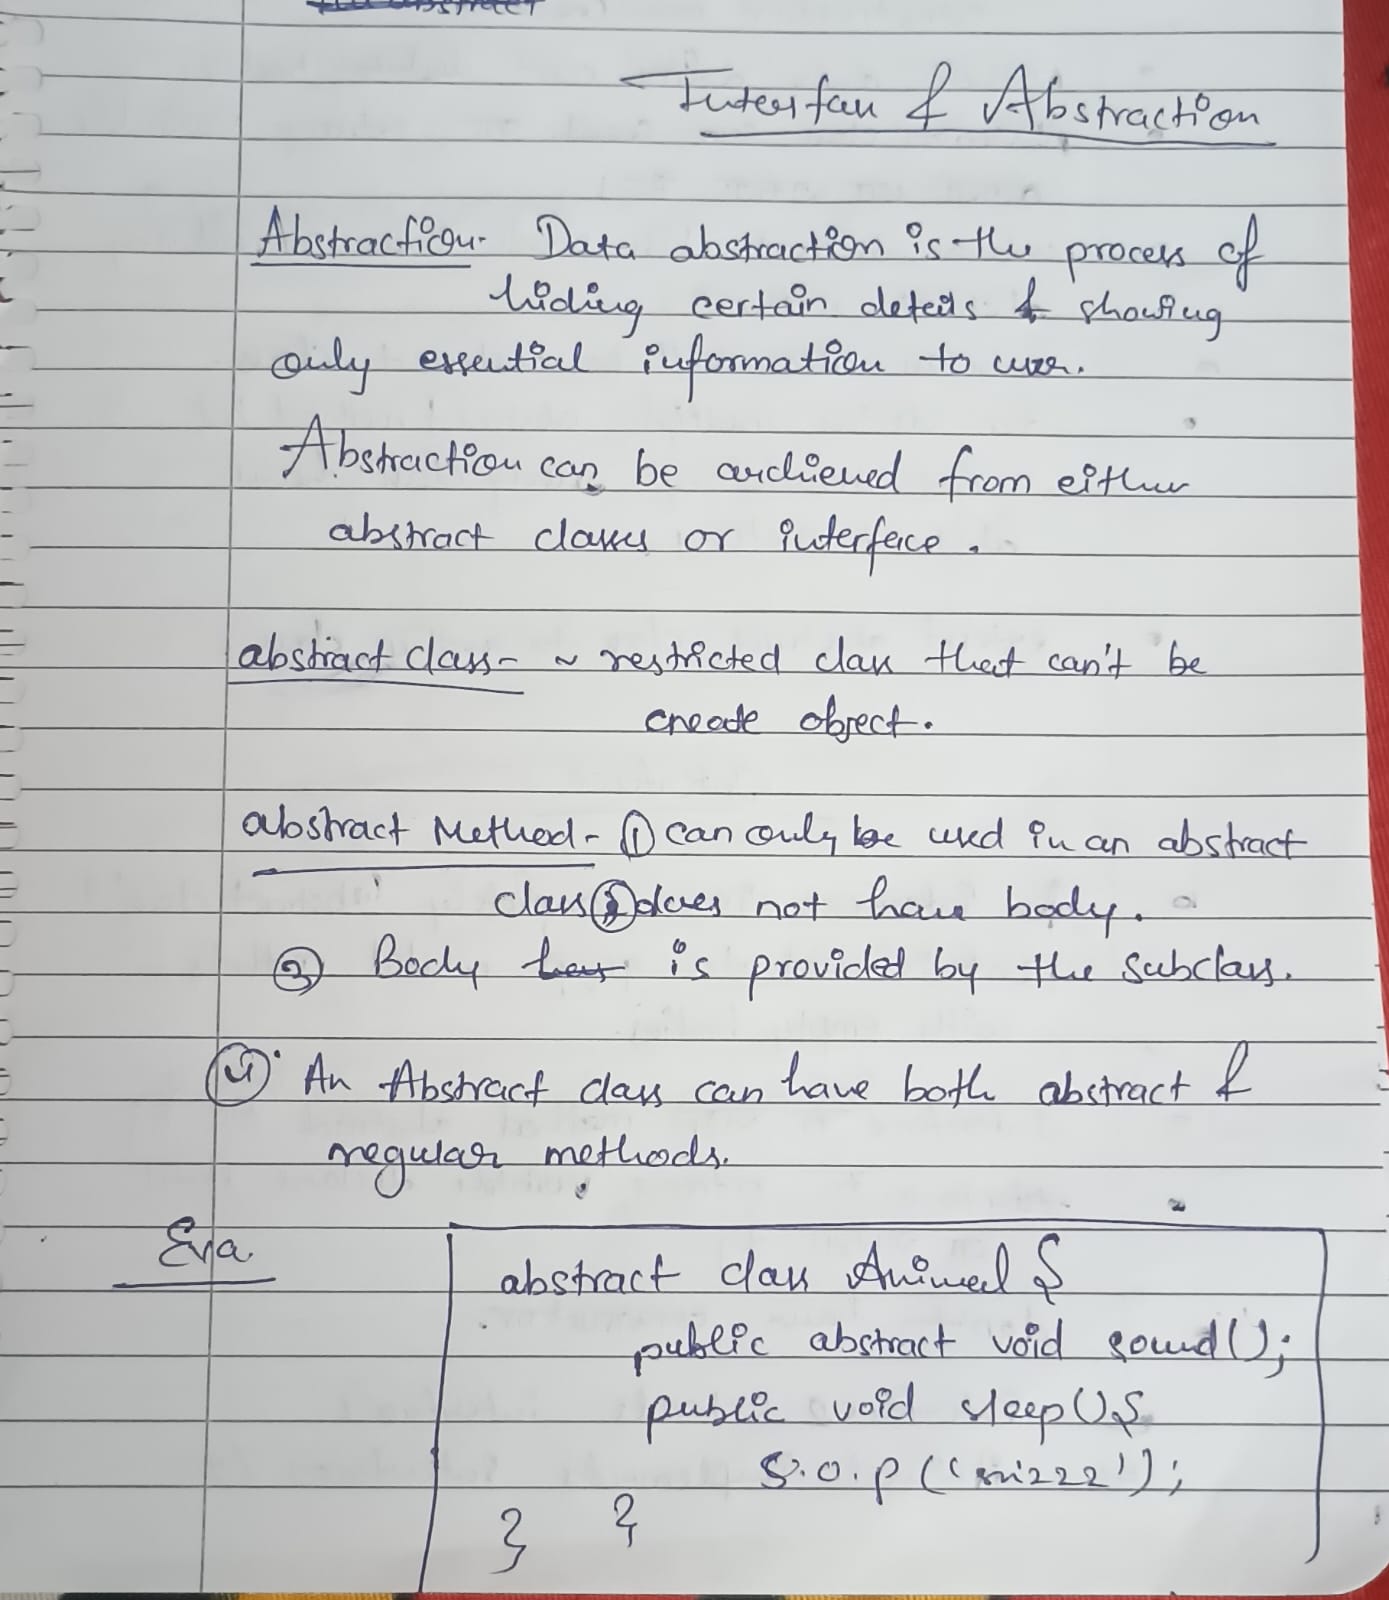 Interface & Abstraction
Abstraction- Data abstraction is the process of
hiding certain details & showing
only essential information to user.
Abstraction can be archieved from either
abstract classes or interface.
abstract class- ~ restricted class that can't be
create object.
abstract Method- ① can only be used in an abstract
class ② does not have body.
③ Body has is provided by the subclass.
④ An Abstract class can have both abstract &
regular methods.
abstract class Animal {
public abstract void sound();
public void sleep(){
S.O.P(
}
}